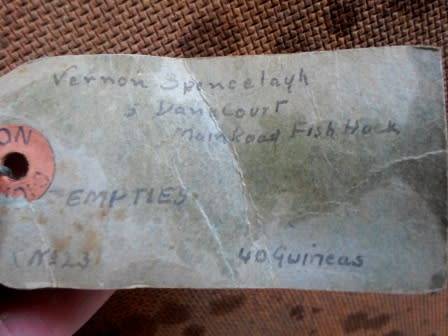 Vernon Spencelayh
5 Danacourt
Main Road Fish Hoek
ON
EMPTIES
No 23
40 Guineas